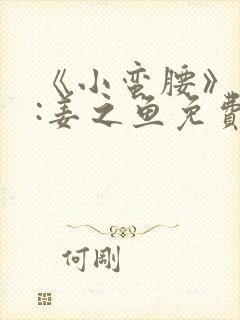 《小蛮腰》
:姜之鱼免費
何剛